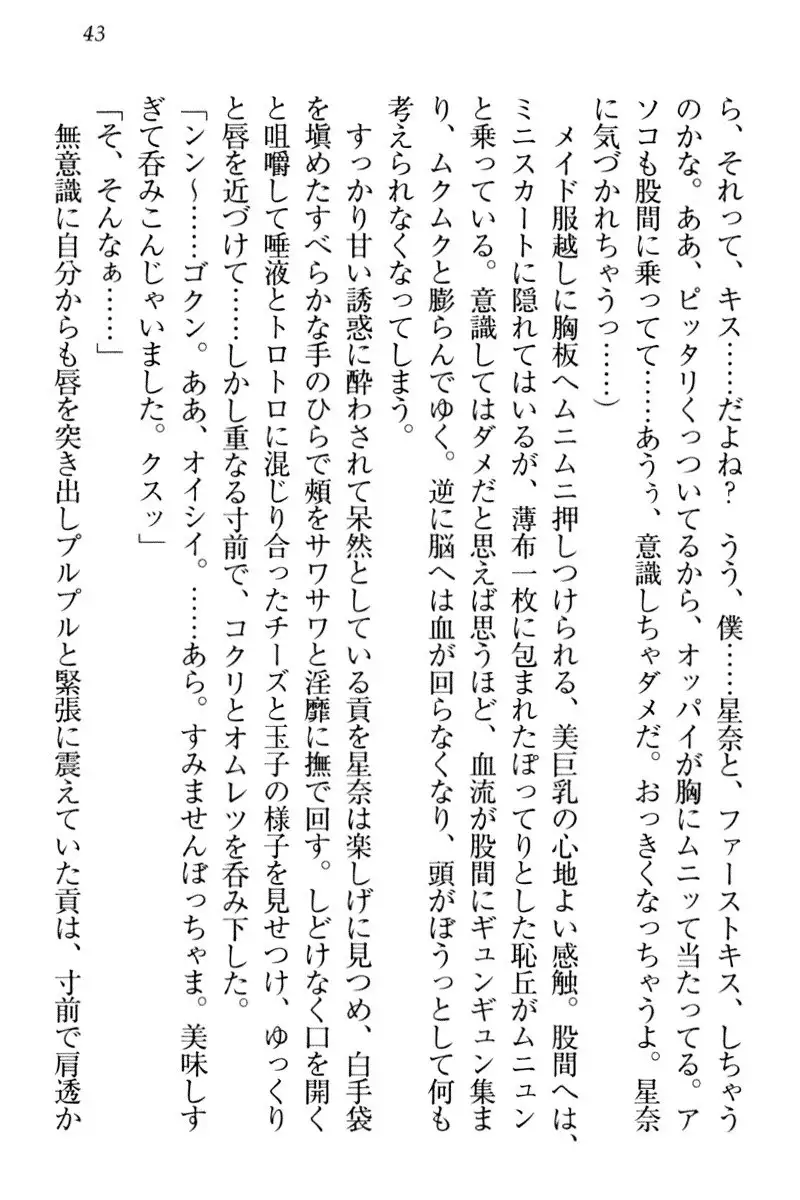 43
ら、それって、キス……だよね？　うう、僕……星奈と、ファーストキス、しちゃう
のかな。ああ、ピッタリくっついてるから、オッパイが胸にムニッて当たってる。ア
ソコも股間に乗ってて……あうぅ、意識しちゃダメだ。おっきくなっちゃうよ。星奈
に気づかれちゃうっ……）
　メイド服越しに胸板へムニムニ押しつけられる、美巨乳の心地よい感触。股間へは、
ミニスカートに隠れてはいるが、薄布一枚に包まれたぽってりとした恥丘がムニュン
と乗っている。意識してはダメだと思えば思うほど、血流が股間にギュンギュン集ま
り、ムクムクと膨らんでゆく。逆に脳へは血が回らなくなり、頭がぽうっとして何も
考えられなくなってしまう。
　すっかり甘い誘惑に酔わされて呆然としている貢を星奈は楽しげに見つめ、白手袋
を塡めたすべらかな手のひらで頰をサワサワと淫靡に撫で回す。しどけなく口を開く
と咀嚼して唾液とトロトロに混じり合ったチーズと玉子の様子を見せつけ、ゆっくり
と唇を近づけて……しかし重なる寸前で、コクリとオムレツを呑み下した。
「ンン～……ゴクン。ああ、オイシイ。……あら。すみませんぼっちゃま。美味しす
ぎて呑みこんじゃいました。クスッ」
「そ、そんなぁ……」
　無意識に自分からも唇を突き出しプルプルと緊張に震えていた貢は、寸前で肩透か